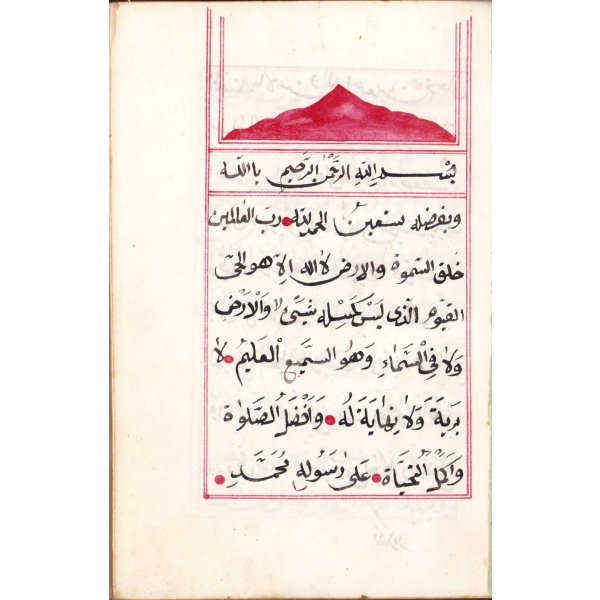 بِسْــمِ اللّٰهِ الرَّحْمٰنِ الرَّحِيمِ بالله
وبفضله نستعين الحمد لله رب العالمين
خلق السموة والارض لا اله الا هو الحي
القيوم الذي ليس كمثله شيئ والارض
ولا في السماء وهو السميع العليم لا
برية ولا نهاية له وافضل الصلوة
واكمل التحياة على رسوله محمد